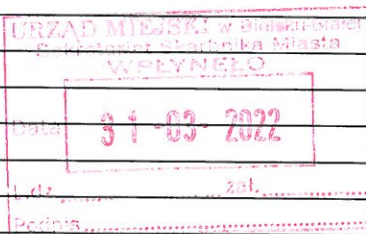 URZĄD MIEJSKI w Bielsku-Białej
Sekretariat Skarbnika Miasta
WPŁYNĘŁO
Data 31 -03- 2022
L.dz. ........ zał. ........
Podpis ........